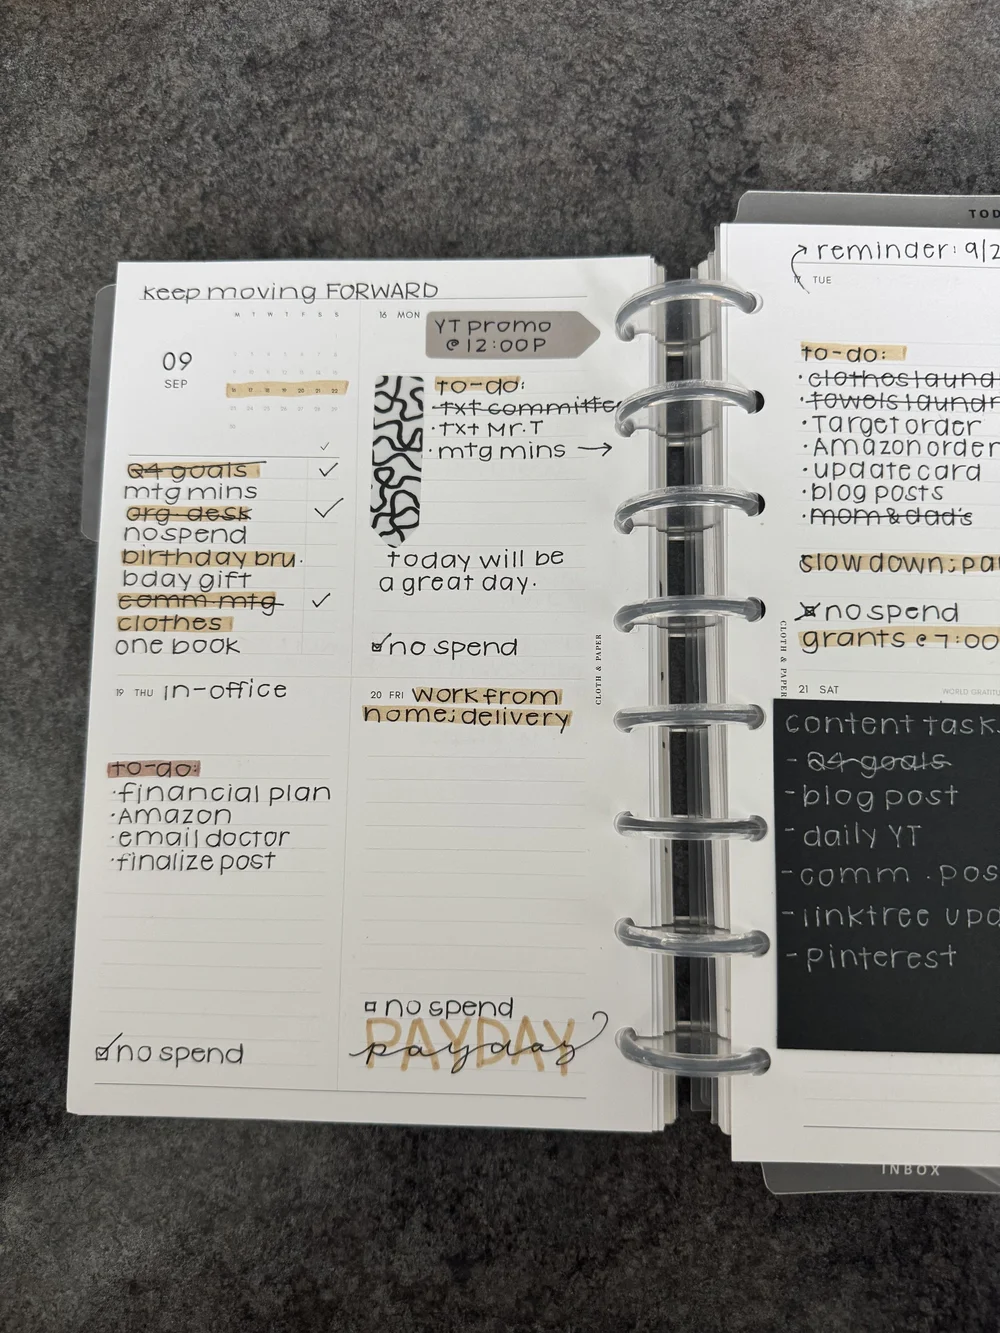 keep moving FORWARD
M T W T F S S
09
SEP
16 17 18 19 20 21 22
Q4 goals
mtg mins
org desk
no spend
birthday bru.
bday gift
comm mtg
clothes
one book
16 MON
YT promo
@ 12:00P
to-do:
· txt committe
· txt Mr. T
· mtg mins →
today will be
a great day.
no spend
CLOTH & PAPER
19 THU in-office
to-do:
· financial plan
· Amazon
· email doctor
· finalize post
no spend
20 FRI work from
home; delivery
no spend
PAYDAY
payday
TOD
reminder: 9/2
17 TUE
to-do:
· clothes laund
· towels laundr
· Target order
· Amazon order
· update card
· blog posts
· mom & dad's
slow down; pa
no spend
grants @ 7:00
CLOTH & PAPER
21 SAT
WORLD GRATITU
content task
- Q4 goals
- blog post
- daily YT
- comm. pos
- linktree upd
- pinterest
INBOX